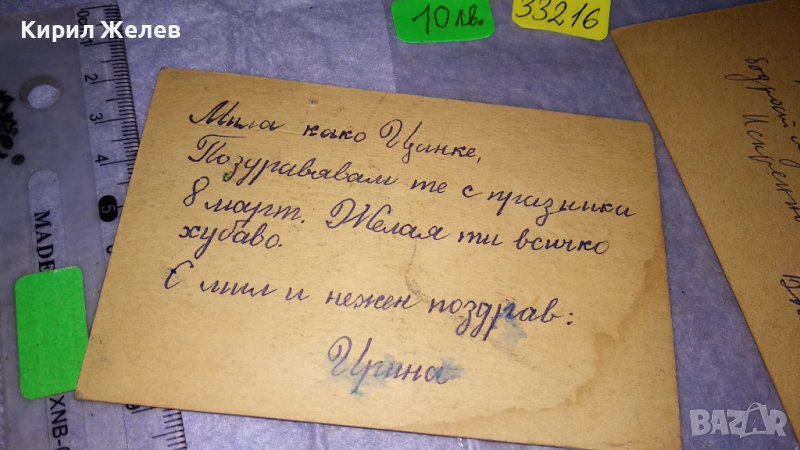 Кирил Желев
10лв.
33216
Мила како Цинке,
Поздравявам те с празника
8 март. Желая ти всичко
хубаво.
С мил и нежен поздрав:
Ирина
MADE
XNB-
2
3
5
BAZAR